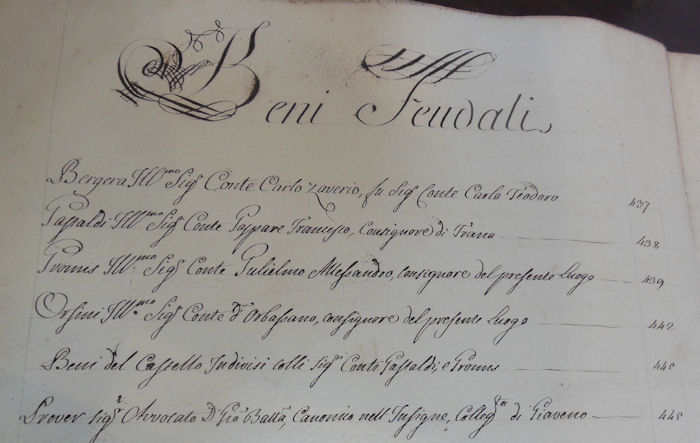 Beni Feudali
Bergera Ill.mo Sig.r Conte Carlo Zaverio, fu Sig.r Conte Carlo Teodoro 437
Gastaldi Ill.mo Sig.r Conte Gaspare Francesco, Consignore di Trana 438
Promis Ill.mo Sig.r Conte Gulielmo Alessandro, consignore del presente Luogo 439
Orsini Ill.mo Sig.r Conte d'Orbassano, consignore del presente Luogo 442
Beni del Castello Indivisi colli Sig.ri Conti Gastaldi, e Promis 445
Prover Sig.r Avvocato D. Gio Batta, Canonico nell'Insigne, Colleg.ta di Giaveno 445